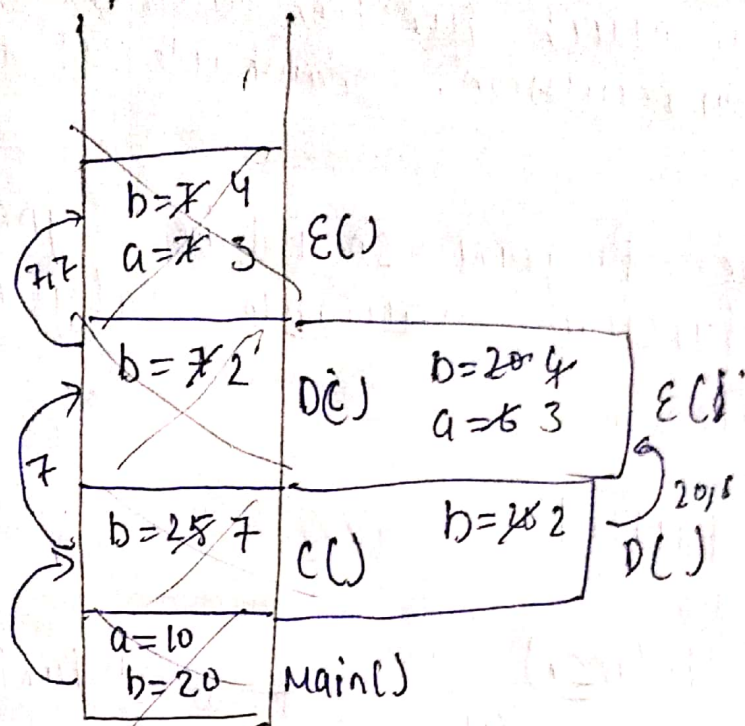 b=7 4
a=7 3
E()
7,7
b=7 2
D()
b=20 4
a=5 3
E()
7
b=25 7
C()
b=2
20,5
D()
a=10
b=20
Main()